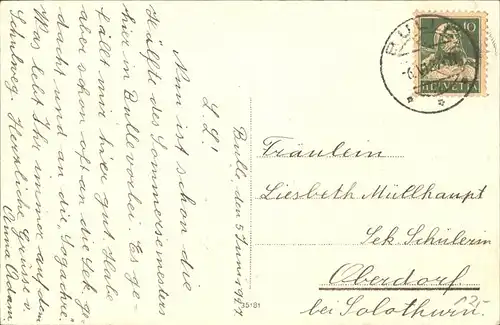 Bulle, den 5 Juni 1927
L. L!
Nun ist schon die
Hälfte des Sommersemesters
hier in Bulle vorbei. Es ge-
fällt mir hier gut. Habe
aber schon oft an die Sek. ge-
dacht und an die
Was lebt Ihr immer auf dem
Schulweg. Herzliche Grüsse v.
Anna Adam
BULLE
10
HELVETIA
Fräulein
Liesbeth Müllhaupt
Sek Schülerin
Oberdorf
bei Solothurn
35181